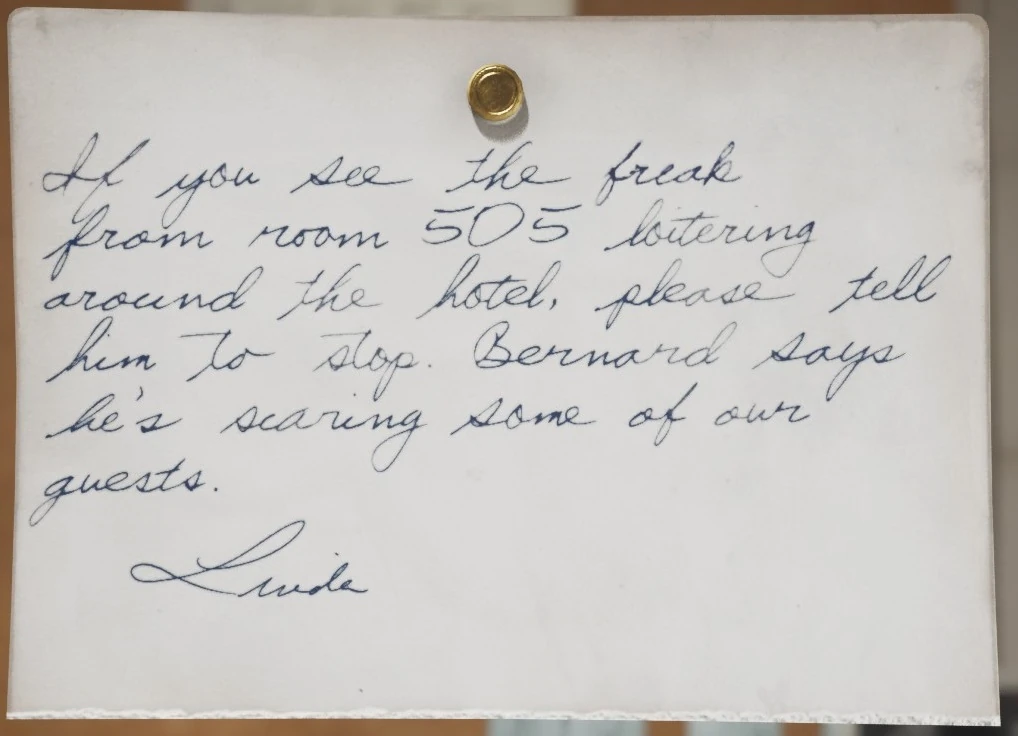 If you see the freak
from room 505 loitering
around the hotel, please tell
him to stop. Bernard says
he's scaring some of our
guests.
Linda